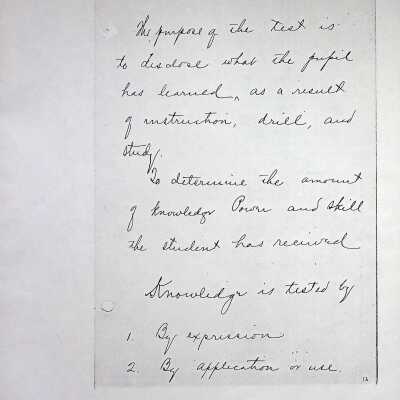 The purpose of the test is
to disclose what the pupil
has learned, as a result
of instruction, drill, and
study.
To determine the amount
of knowledge Power and skill
the student has recieved
Knowledge is tested by
1. By expression
2. By application or use.
12